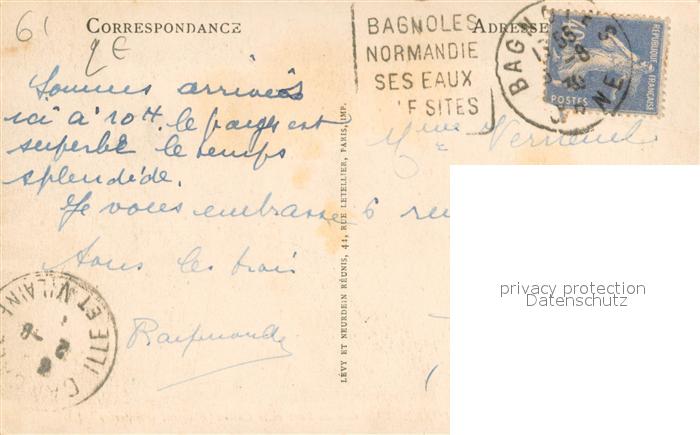 61
2E
CORRESPONDANCE
ADRESSE
Sommes arrivés
ici à 10 H. le pays est
superbe le temps
splendide.
Je vous embrasse
tous les trois
Raymonde
LÉVY ET NEURDEIN RÉUNIS, 44, RUE LETELLIER, PARIS, IMP.
BAGNOLES
NORMANDIE
SES EAUX
SITES
BAGNOLES
ORNE
40
POSTES
REPUBLIQUE FRANÇAISE
Mme Verneuil
6
ILLE ET VILAINE
privacy protection
Datenschutz